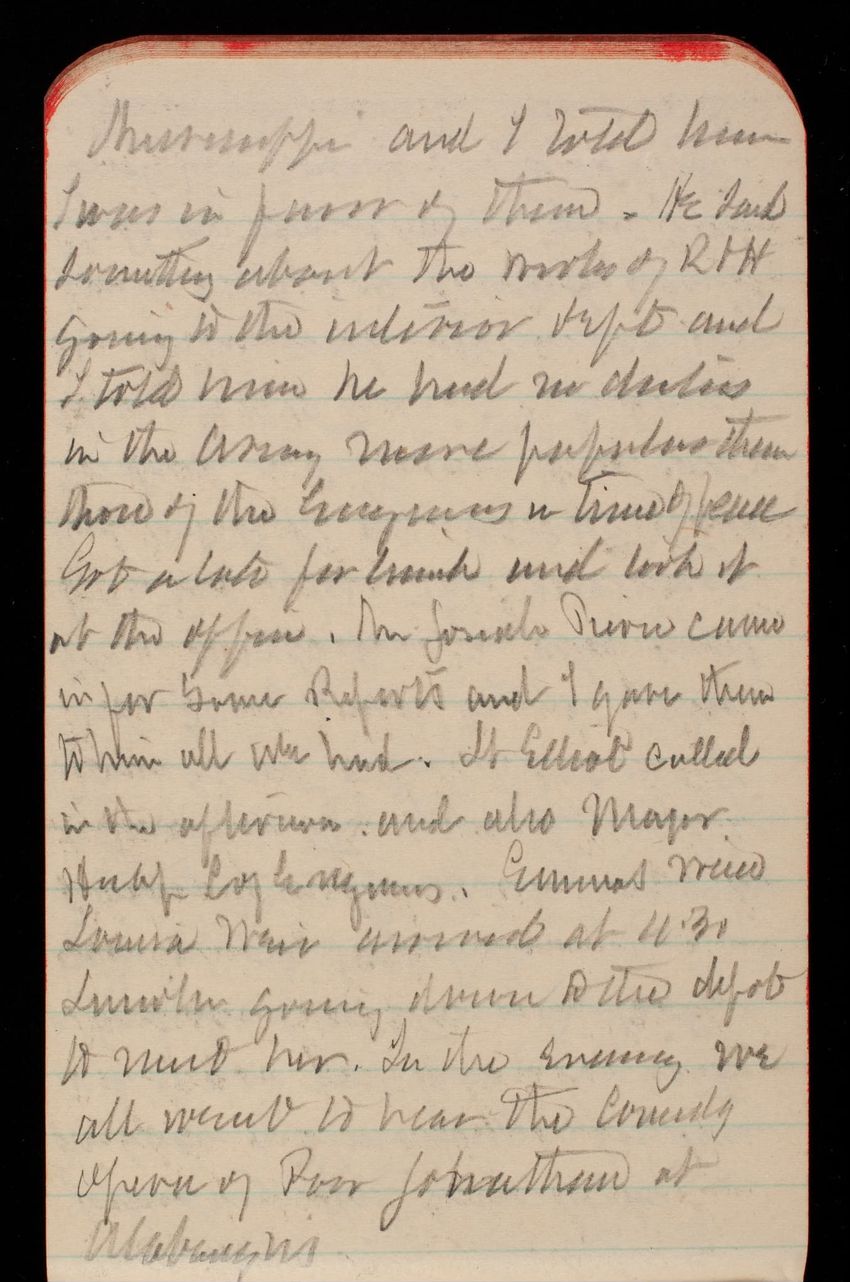 Mississippi and I told him
I was in favor of them. He said
something about the works of R & H
going to the interior dept and
I told him he had no duties
in the Army more popular than
those of the Engineers in time of peace
Got a late for lunch and took it
at the office. Mr Joseph came
in for some Reports and I gave them
to him all we had. Lt Elliot called
in the afternoon and also Major
of Engineers. Emmas
Louisa Weir arrived at 4.30
Lincoln going down to the depot
to meet her. In the evening we
all went to hear the Comedy
Opera of Poor Johnathan at
Albaughs